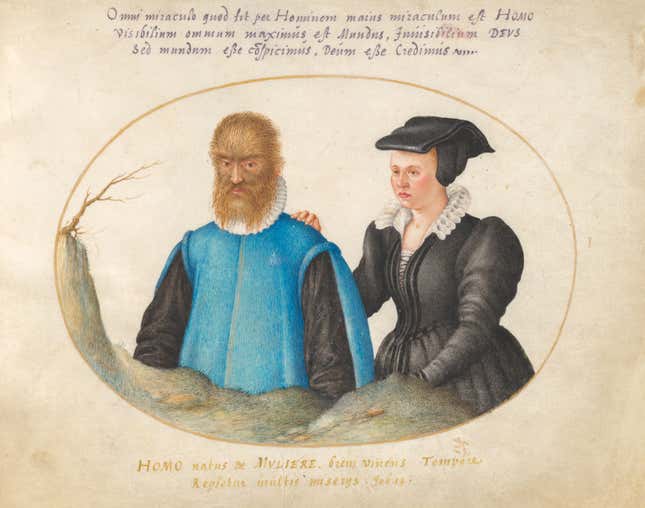 Omni miraculo quod fit per Hominem maius miraculum est HOMO
Visibilium omnium maximus est Mundus, Invisibilium DEUS
Sed mundum esse conspicimus, Deum esse Credimus
HOMO natus de MVLIERE, brevi vivens Tempore
Repletur multis miserijs Job 14: